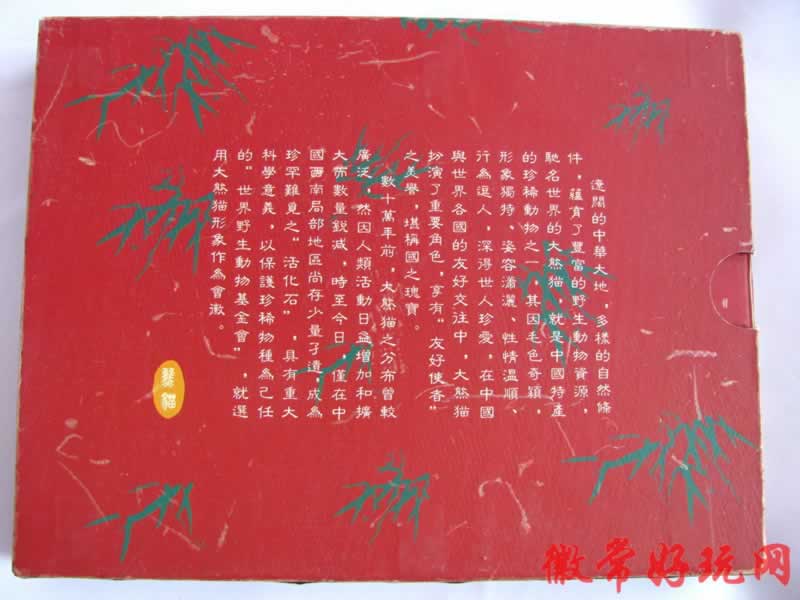 遼闊的中華大地，多樣的自然條
件，蘊育了豐富的野生動物資源，
馳名世界的大熊猫，就是中國特產
的珍稀動物之一，其因毛色奇穎，
形象獨特、姿容瀟灑、性情溫順、
行為逗人，深得世人珍愛，在中國
與世界各國的友好交往中，大熊猫
扮演了重要角色，享有"友好使者"
之美譽，堪稱國之瑰寶。
數十萬年前，大熊猫之分布曾較
廣泛，然因人類活動日益增加和擴
大而數量銳減，時至今日，僅在中
國西南局部地區尚存少量孑遺，成為
珍罕難見之"活化石"，具有重大
科學意義，以保護珍稀物種為己任
的"世界野生動物基金會"，就選
用大熊猫形象作為會徽。
熊貓
徽常好玩网